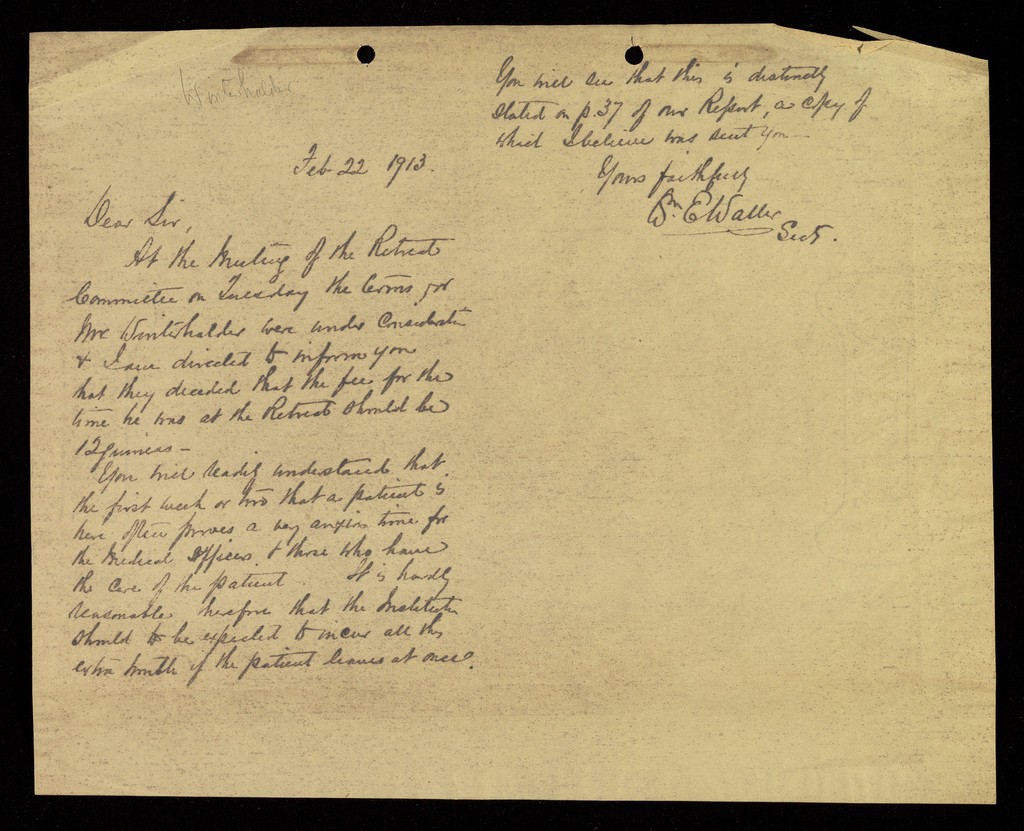 Winterhalder
Feb 22 1913.
Dear Sir,
At the Meeting of the Retreat
Committee on Tuesday the terms for
Mr Winterhalder were under Consideration
& I am directed to inform you
that they decided that the fee for the
time he was at the Retreat should be
12 guineas –
You will readily understand that
the first week or two that a patient is
here often proves a very anxious time for
the Medical Officers & those who have
the care of the patient. It is hardly
reasonable therefore that the Institution
should be expected to incur all this
extra trouble if the patient leaves at once.
You will see that this is distinctly
stated on p. 37 of our Report, a copy of
which I believe was sent you –
Yours faithfully
Wm. E Waller
Secy.